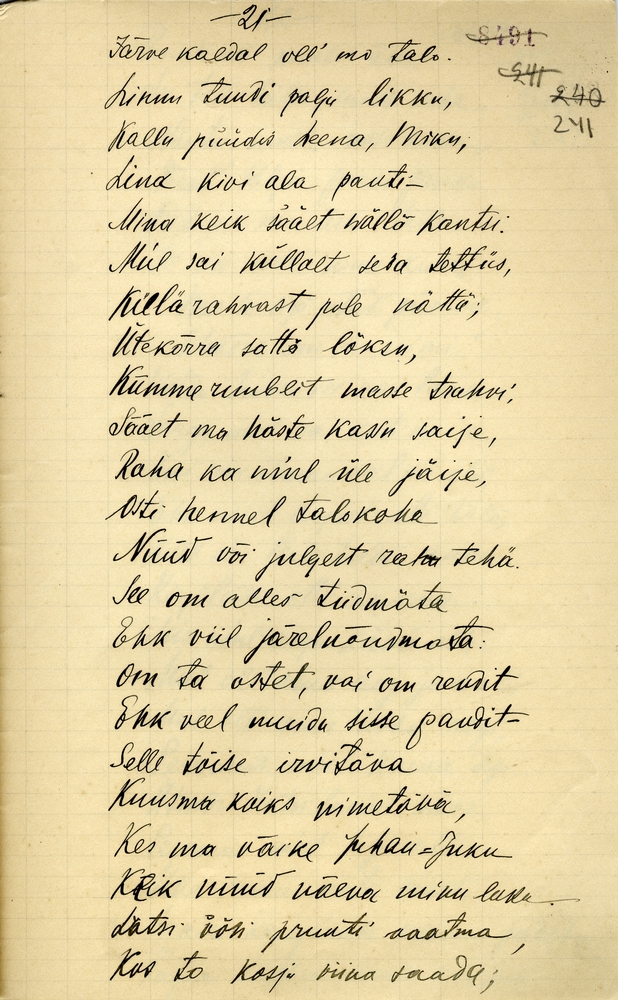 —21—
8491
241
240
241
Järve kaldal oll' mo talo.
Linnu tuudi palju likku,
Kallu püüdis Leena, Miku,
Lina kivi ala panti—
Mina keik säält wällä kantsi.
Miil sai küllalt seda tettüs,
Küllä rahvast pole nättä;
Ütekõrra satte lõksu,
Kümme ruublit masse trahvi,
Säält ma häste kassu saije,
Raha ka minul üle jäije,
Osti hennel talokoha
Nüüd või julgest rahu tehä.
See om alles tiidmäta
Ehk viil järelnõudmata:
Om ta ostet, vai om rendit
Ehk veel muidu sisse pandit—
Selle tõise irvitäva
Kuusma koiks nimetävä,
Kes ma väike Juhan=Juku
Keik nüüd näeva minu luku
Lätsi öösi pruuti vaatma,
Kos to kosju viina saada;